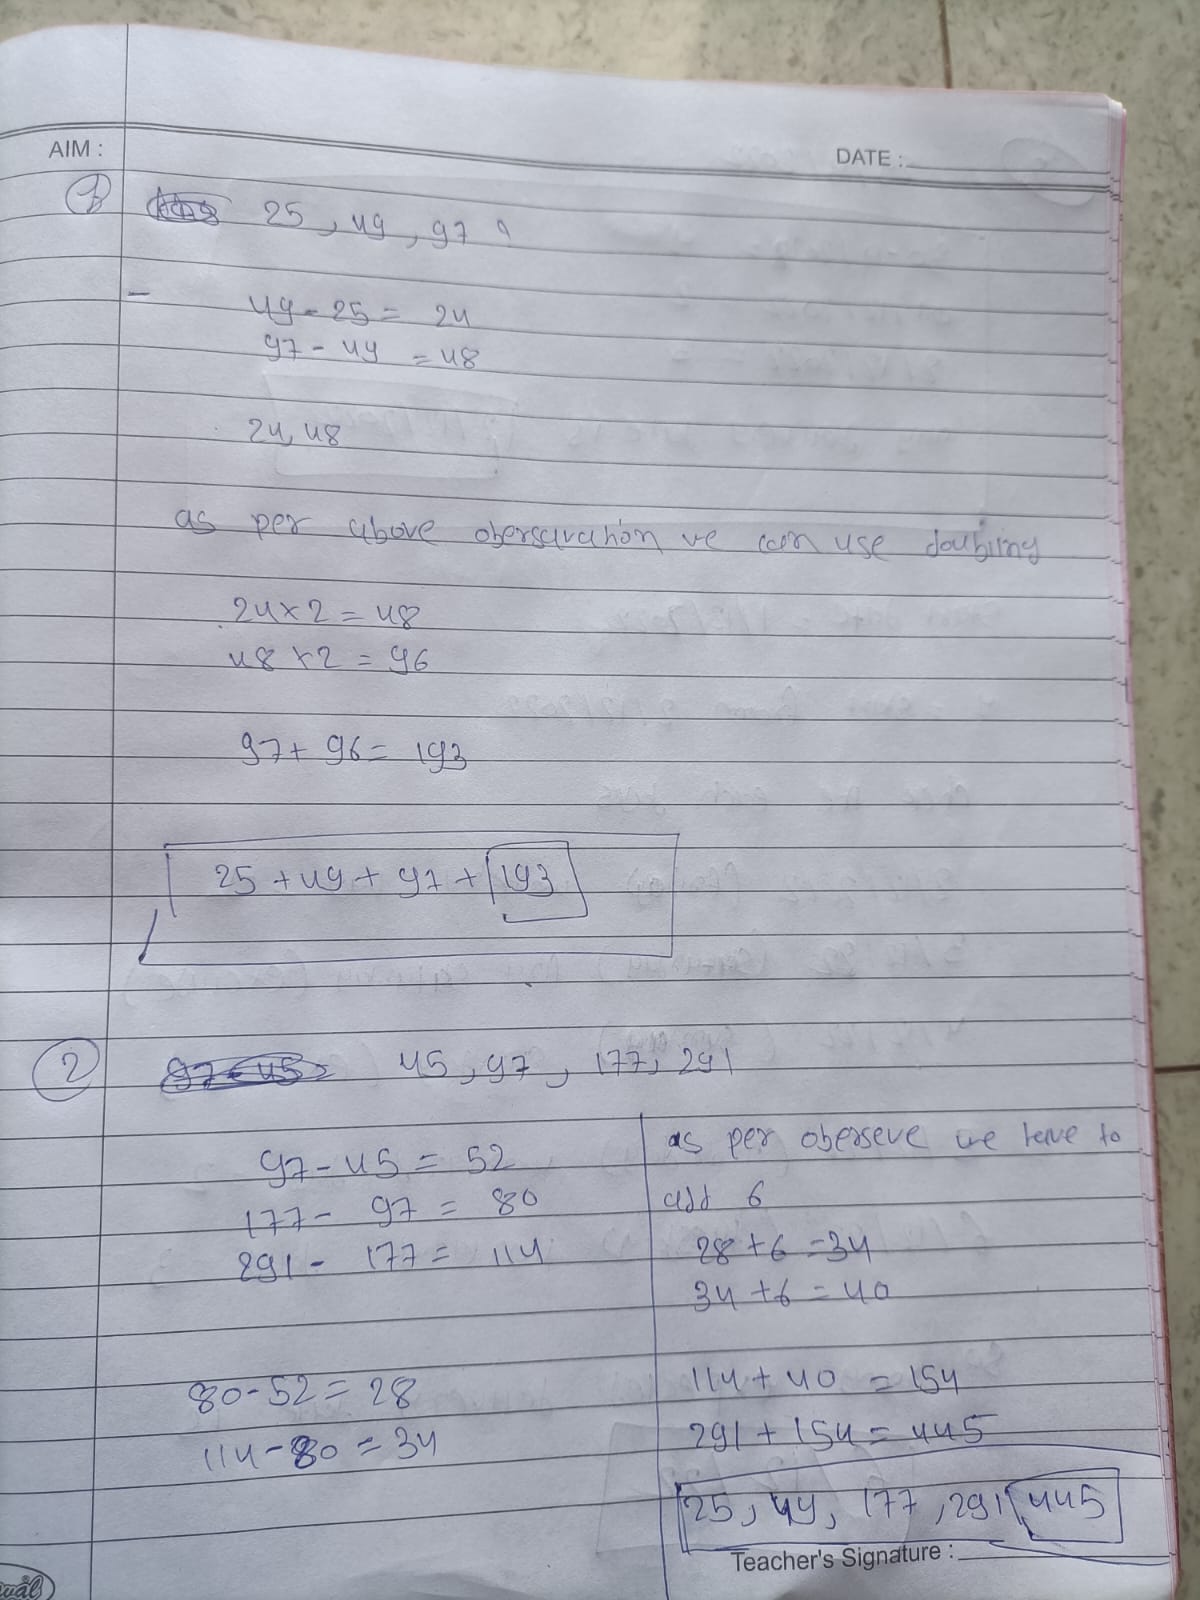 AIM :
DATE :
1 25 , 49 , 97 ?
49 - 25 = 24
97 - 49 = 48
24, 48
as per above obersavation we can use doubling
24 x 2 = 48
48 x 2 = 96
97 + 96 = 193
25 + 49 + 97 + 193
2 45 , 97 , 177 , 291
97 - 45 = 52
177 - 97 = 80
291 - 177 = 114
80 - 52 = 28
114 - 80 = 34
as per oberseve we have to
add 6
28 + 6 = 34
34 + 6 = 40
114 + 40 = 154
291 + 154 = 445
25 , 49 , 177 , 291 445
Teacher's Signature :